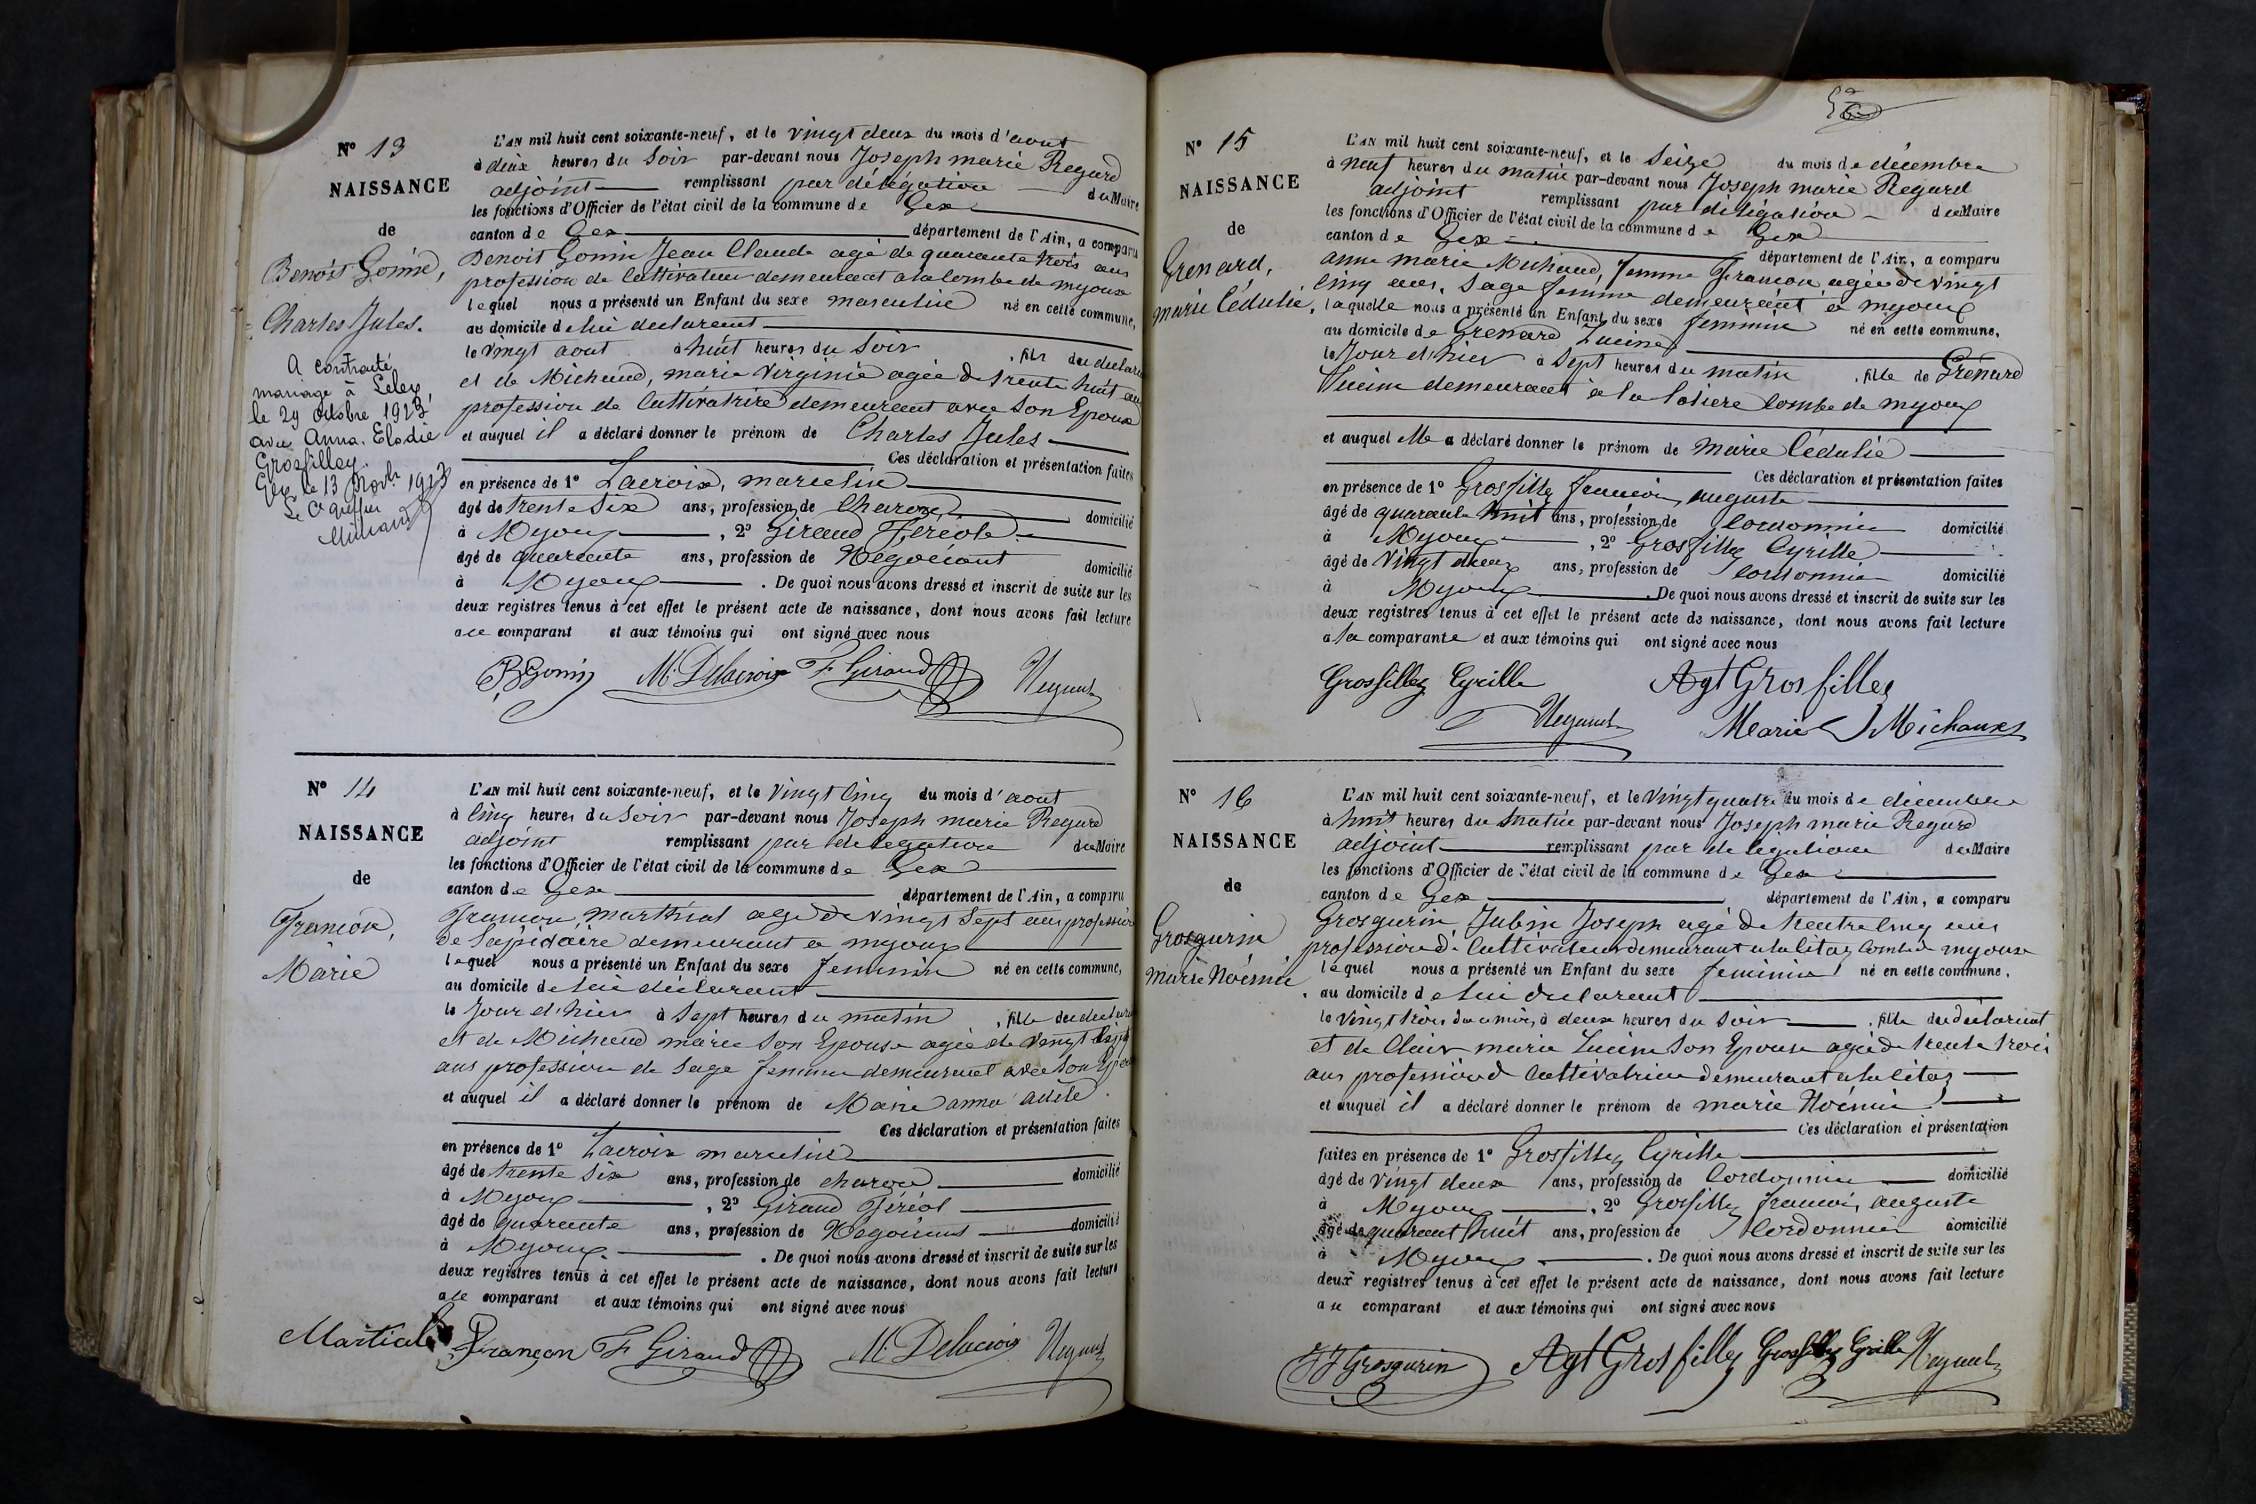 N° 13
NAISSANCE
de
Benoit Gonin,
Charles Jules.
A contracté
mariage à Lelex,
le 29 octobre 1923,
avec Anna. Elodie
Grosfilley.
Gex le 13 Novbr 1923
Le Cis greffier
L'AN mil huit cent soixante-neuf, et le vingt deux du mois d'aout
à deux heures du soir par-devant nous Joseph marie Regard
adjoint remplissant par délégation du Maire
les fonctions d'Officier de l'état civil de la commune de Gex
canton de Gex département de l'Ain, a comparu
Benoit Gonin Jean Claude agé de quarante trois ans
profession de Cultivateur demeurant a la combe de myoux
lequel nous a présenté un Enfant du sexe masculin né en cette commune,
au domicile de lui declarant
le vingt aout à huit heures du soir , fils du declarant
et de Michaud, marie virginie agée de trente huit ans
profession de Cultivatrice demeurant avec son Epoux
et auquel il a déclaré donner le prénom de Charles Jules
Ces déclaration et présentation faites
en présence de 1° Lacroix, marcelin
âgé de trente six ans, profession de Charon domicilié
à Myoux , 2° Giraud Fréréole
âgé de quarante ans, profession de Négociant domicilié
à Myoux . De quoi nous avons dressé et inscrit de suite sur les
deux registres tenus à cet effet le présent acte de naissance, dont nous avons fait lecture
au comparant et aux témoins qui ont signé avec nous
BGonin M. Delacroix F Giraud Regard
N° 14
NAISSANCE
de
Françon,
Marie
L'AN mil huit cent soixante-neuf, et le vingt cinq du mois d'aout
à cinq heures du soir par-devant nous Joseph marie Regard
adjoint remplissant par délégation du Maire
les fonctions d'Officier de l'état civil de la commune de Gex
canton de Gex département de l'Ain, a comparu
Françon, marthial agé de vingt sept ans profession
de Lapidaire demeurant a myoux
lequel nous a présenté un Enfant du sexe feminin né en cette commune,
au domicile de lui déclarant
le jour d'hier à sept heures du matin , fille du declarant
et de Michaud marie son Epouse agée de vingt
ans profession de sage femme demeurant avec son Epoux
et auquel il a déclaré donner le prénom de Marie anna adèle.
Ces déclaration et présentation faites
en présence de 1° Lacroix marcelin
âgé de trente six ans, profession de charon domicilié
à Myoux , 2° Giraud Féréol
âgé de quarante ans, profession de Négociant domicilié
à Myoux. . De quoi nous avons dressé et inscrit de suite sur les
deux registres tenus à cet effet le présent acte de naissance, dont nous avons fait lecture
au comparant et aux témoins qui ont signé avec nous
Martial Françon F Giraud M. Delacroix Regard
N° 15
NAISSANCE
de
Grenard,
marie Cédulie,
L'AN mil huit cent soixante-neuf, et le seize du mois de décembre
à neuf heures du matin par-devant nous Joseph marie Regard
adjoint remplissant par délégation du Maire
les fonctions d'Officier de l'état civil de la commune de Gex
canton de Gex département de l'Ain, a comparu
anne marie Michaud, femme Françon, agée de vingt
cinq ans, sage femme demeurant a myoux
laquelle nous a présenté un Enfant du sexe feminin né en cette commune,
au domicile de Grenard Lucine
le jour d'hier à sept heures du matin , fille de Grenard
Lucine demeurant à la combe de myoux
et auquel elle a déclaré donner le prénom de marie Cédulie
Ces déclaration et présentation faites
en présence de 1° Grosfilley françois, auguste
âgé de quarante huit ans, profession de Cordonnier domicilié
à Myoux , 2° Grosfilley Cyrille
âgé de vingt deux ans, profession de Cordonnier domicilié
à Myoux . De quoi nous avons dressé et inscrit de suite sur les
deux registres tenus à cet effet le présent acte de naissance, dont nous avons fait lecture
a la comparante et aux témoins qui ont signé avec nous
Grosfilley Cyrille Agt Grosfilley
Regard Marie Michaux
N° 16
NAISSANCE
de
Grosgurin
marie Noémie
L'AN mil huit cent soixante-neuf, et le vingt quatre du mois de décembre
à huit heures du matin par-devant nous Joseph marie Regard
adjoint remplissant par délégation du Maire
les fonctions d'Officier de l'état civil de la commune de Gex
canton de Gex département de l'Ain, a comparu
Grosgurin, Jubin Joseph agé de trentre cinq ans
profession de Cultivateur demeurant a la litaz combe de myoux
lequel nous a présenté un Enfant du sexe feminin né en cette commune,
au domicile de lui declarant
le vingt trois du mois, à deux heures du soir , fille du déclarant
et de Clair marie Lucine son Epouse agée de trente trois
ans profession de Cultivatrice demeurant a la litaz
et auquel il a déclaré donner le prénom de marie Noémie
Ces déclaration et présentation
faites en présence de 1° Grosfilley Cyrille
âgé de vingt deux ans, profession de Cordonnier domicilié
à Myoux , 2° Grosfilley françois auguste
âgé de quarant huit ans, profession de Cordonnier domicilié
à Myoux . De quoi nous avons dressé et inscrit de suite sur les
deux registres tenus à cet effet le présent acte de naissance, dont nous avons fait lecture
au comparant et aux témoins qui ont signé avec nous
JJ Grosgurin Agt Grosfilley Grosfilley Cyrille Regard